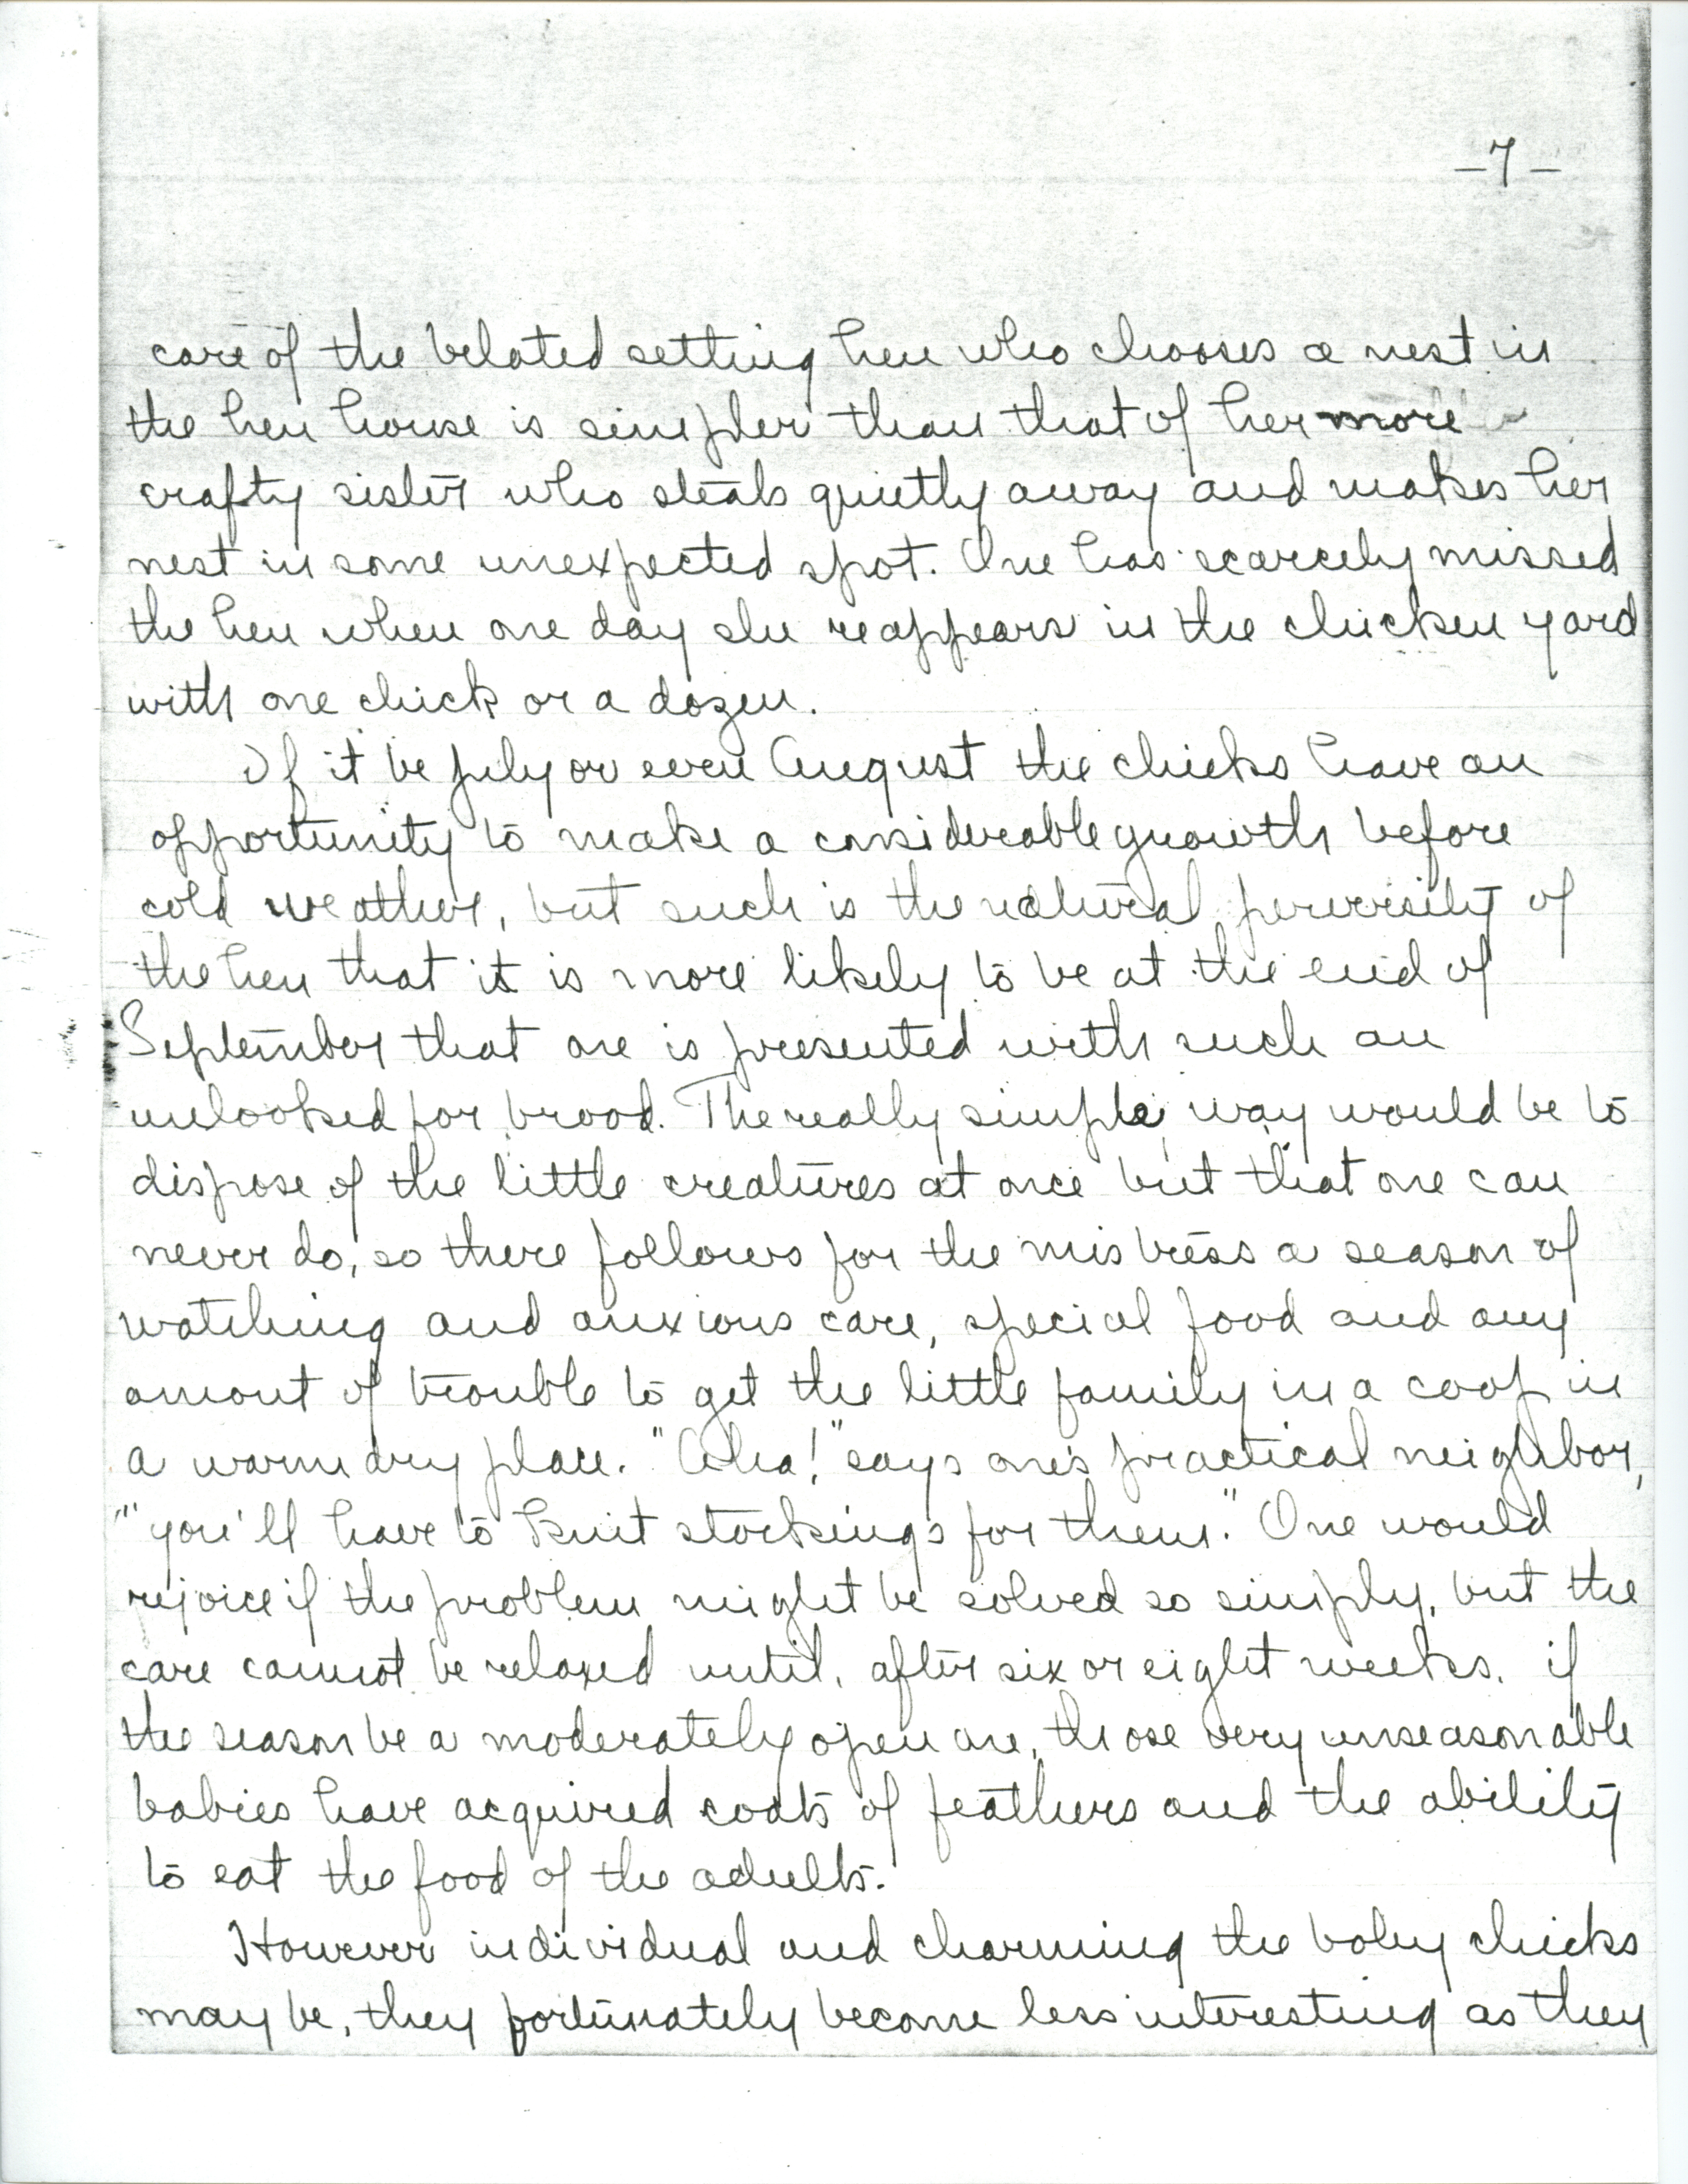 -7-
care of the belated setting hen who chooses a nest in
the hen house is simpler than that of her more
crafty sister who steals quietly away and makes her
nest in some unexpected spot. One has scarcely missed
the hen when one day she reappears in the chicken yard
with one chick or a dozen.
If it be July or even August the chicks have an
opportunity to make a considerable growth before
cold weather, but such is the natural perversity of
the hen that it is more likely to be at the end of
September that one is presented with such an
unlooked for brood. The really simple way would be to
dispose of the little creatures at once but that one can
never do, so there follows for the mistress a season of
watching and anxious care, special food and any
amount of trouble to get the little family in a coop in
a warm dry place. "Aha!" says one's practical neighbor,
"you'll have to knit stockings for them." One would
rejoice if the problem might be solved so simply, but the
care cannot be relaxed until, after six or eight weeks, if
the season be a moderately open one, those very unseasonable
babies have acquired coats of feathers and the ability
to eat the food of the adults.
However individual and charming the baby chicks
may be, they fortunately become less interesting as they